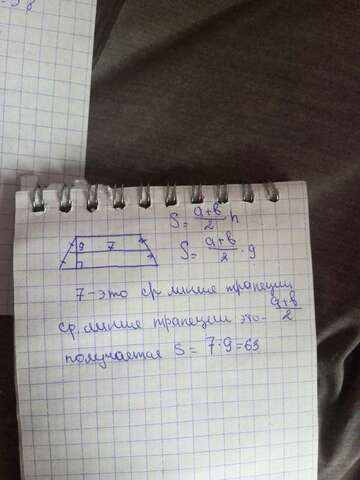 S = (a+b)/2 h
9 7
S = (a+b)/2 · 9
7 - это ср линия трапеции
ср. линия трапеции это - (a+b)/2
получается S = 7·9=63